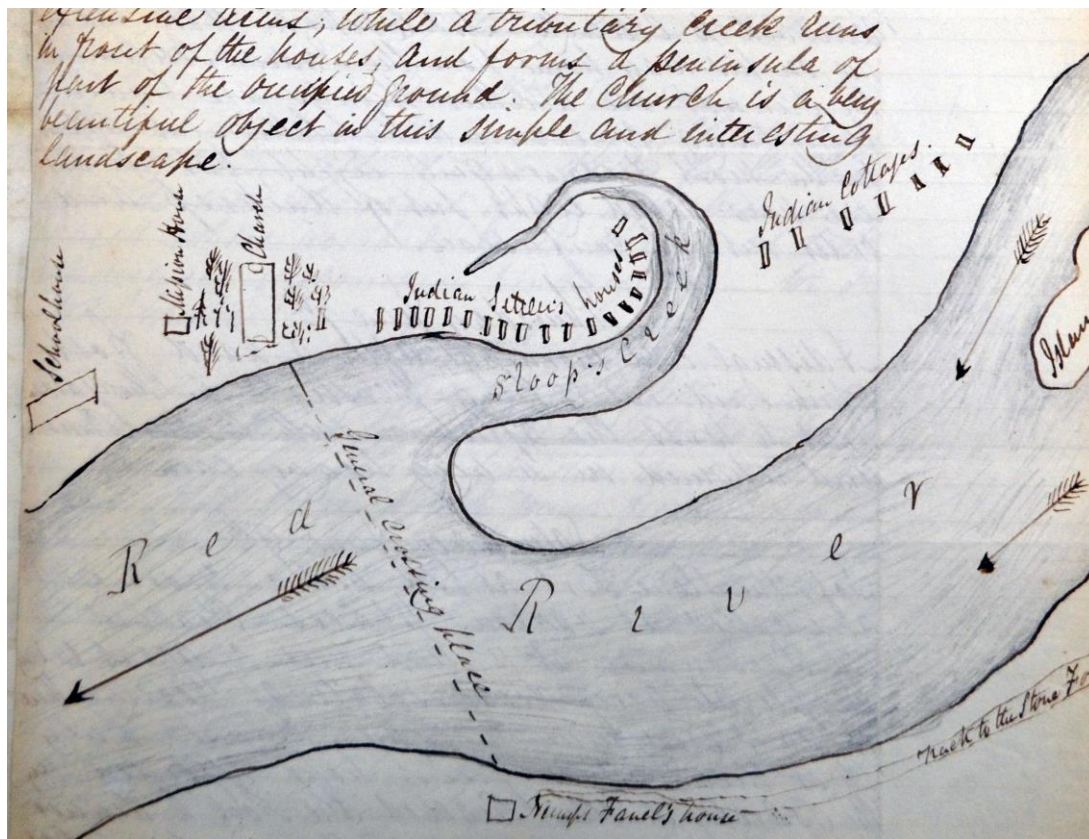 offensive arms, while a tributary creek runs
in front of the houses, and forms a peninsula of
part of the occupied ground. The Church is a very
beautiful object in this simple and interesting
landscape.
Schoolhouse
Mission House
Church
Indian Settlers houses
Sloop's Creek
Indian Cottages.
Island
General Crossing place
Red River
Track to the Stone Fo
house